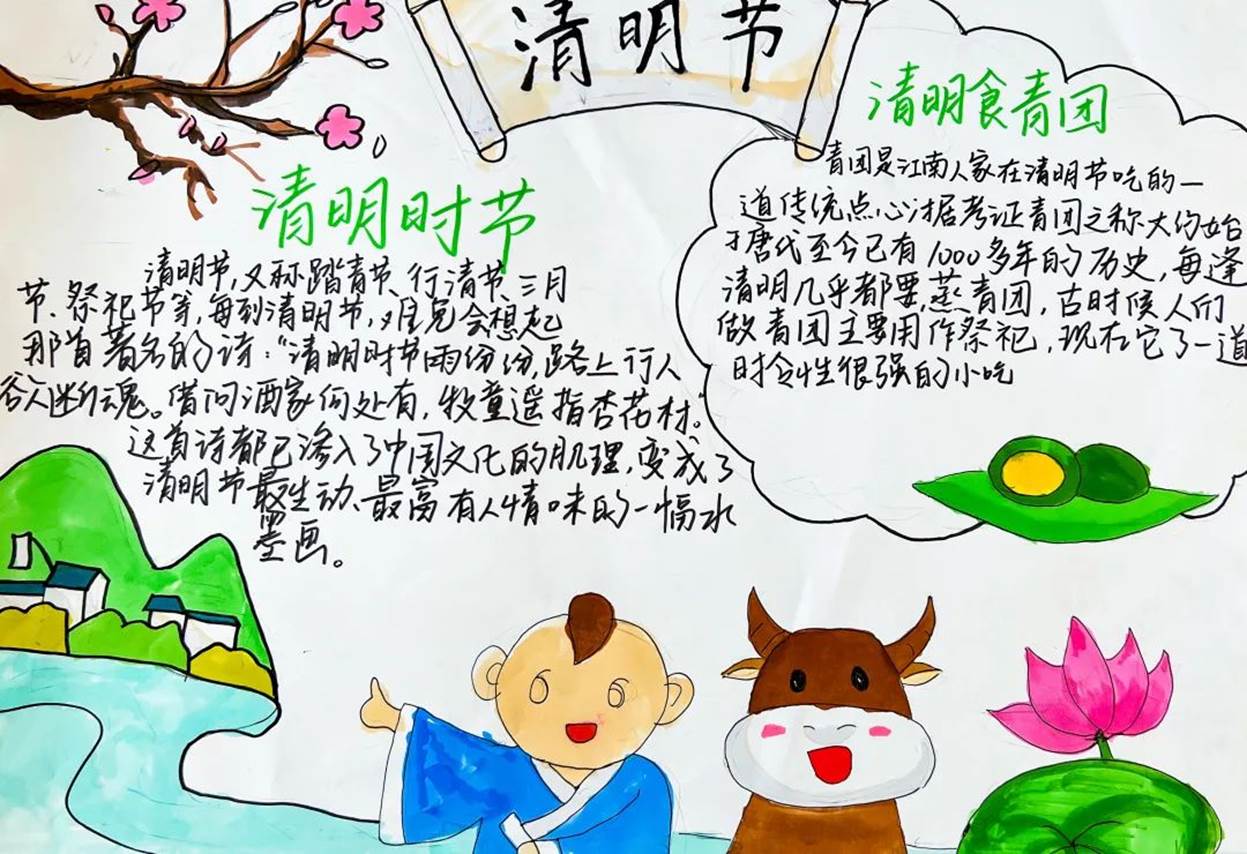 清明节
清明食青团
青团是江南人家在清明节吃的一
道传统点心,据考证青团之称大约始
于唐代至今已有1000多年的历史,每逢
清明几乎都要蒸青团,古时候人们
做青团主要用作祭祀,现在它了一道
时令性很强的小吃
清明时节
清明节,又称踏青节、行清节、三月
节、祭祀节等,每到清明节,难免会想起
那首著名的诗:"清明时节雨份份,路上行人
欲断魂。借问酒家何处有,牧童遥指杏花村。"
这首诗都已渗入了中国文化的肌理,变成了
清明节最生动、最富有人情味的一幅水
墨画。